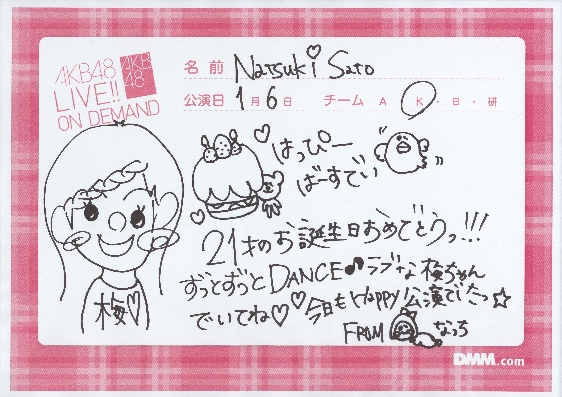 AKB48
LIVE!!
ON DEMAND
AKB
48
名前 Natsuki Sato
公演日 1月6日 チーム A・K・B・研
はっぴー
ばーすでい
21才のお誕生日おめでとうっ!!!
ずっとずっとDANCE♪ラブな梅ちゃん
でいてね♡♡今日もHappy公演でしたっ☆
FROM なっち
梅♡
DMM.com